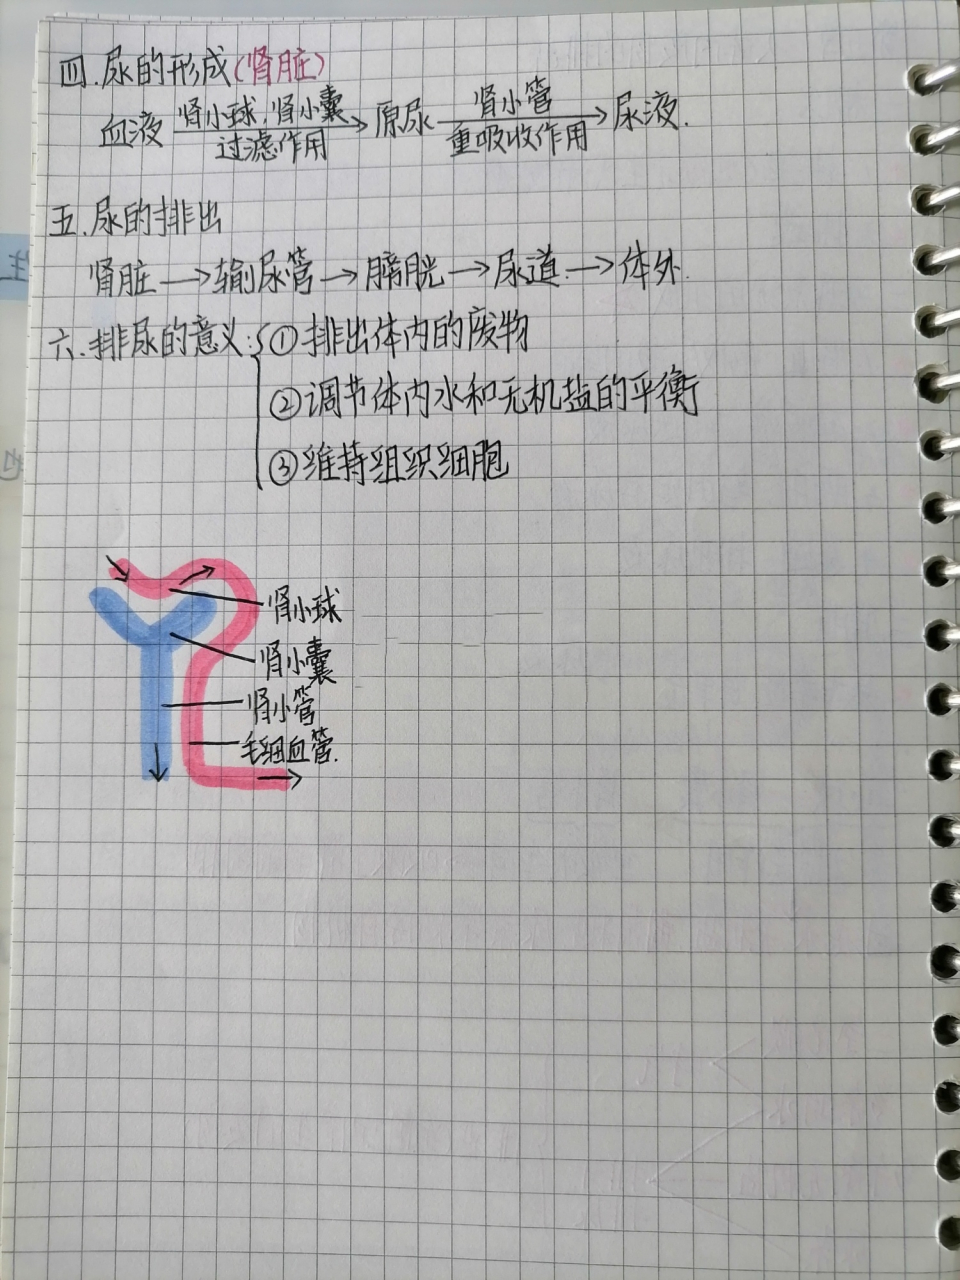 四.尿的形成(肾脏)
血液 肾小球.肾小囊 过滤作用 → 原尿 肾小管 重吸收作用 → 尿液.
五.尿的排出
肾脏→输尿管→膀胱→尿道→体外.
六.排尿的意义:①排出体内的废物
②调节体内水和无机盐的平衡
③维持组织细胞
肾小球
肾小囊
肾小管
毛细血管.